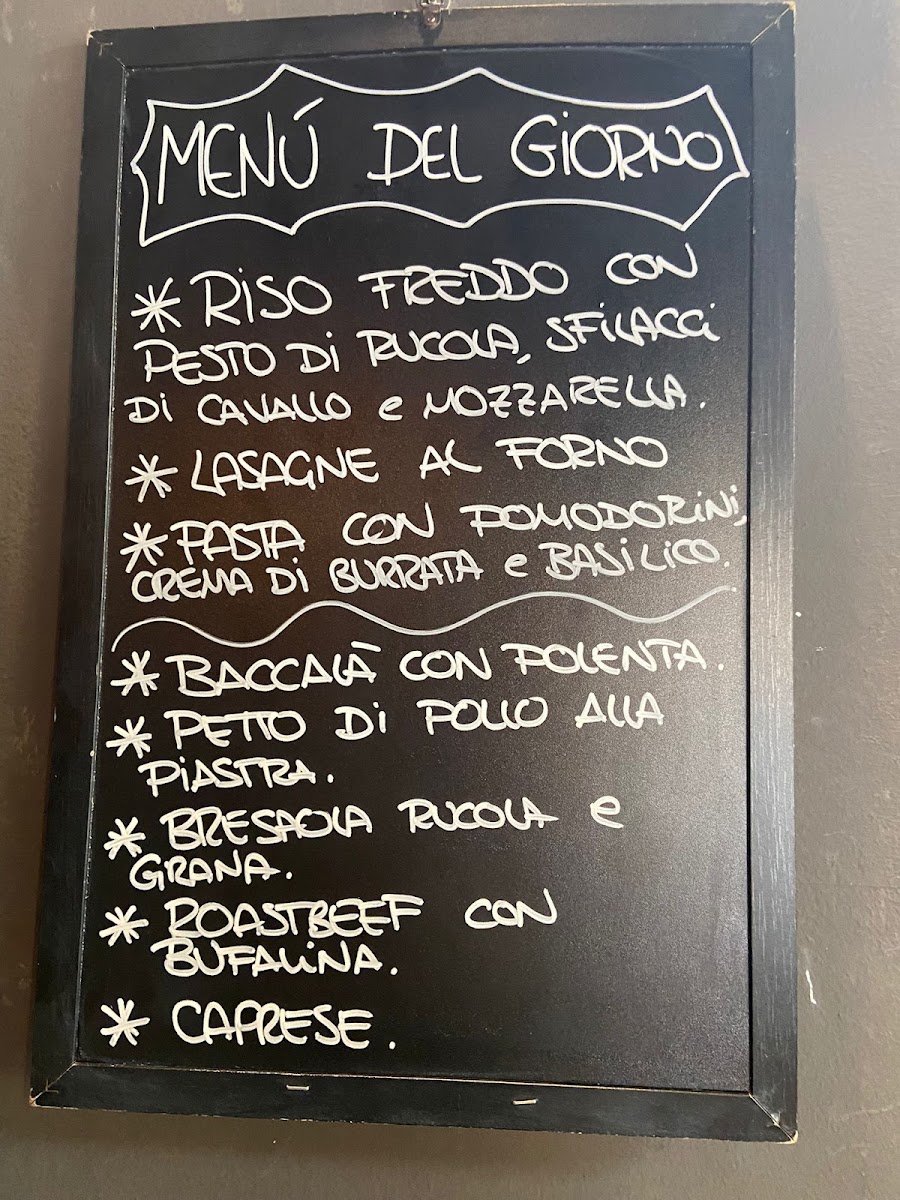 MENÚ DEL GIORNO
* RISO FREDDO CON
PESTO DI RUCOLA, SFILACCI
DI CAVALLO e MOZZARELLA.
* LASAGNE AL FORNO
* PASTA CON POMODORINI,
CREMA DI BURRATA e BASILICO.
* BACCALÀ CON POLENTA.
* PETTO DI POLLO ALLA
PIASTRA.
* BRESAOLA RUCOLA e
GRANA.
* ROASTBEEF CON
BUFALINA.
* CAPRESE.